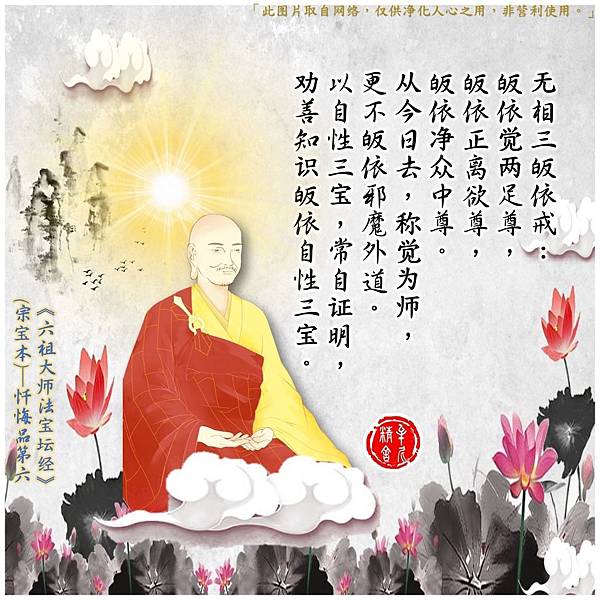 「此图片取自网络，仅供净化人心之用，非营利使用。」
无相三皈依戒：
皈依觉两足尊，
皈依正离欲尊，
皈依净众中尊。
从今日去，称觉为师，
更不皈依邪魔外道。
以自性三宝，常自证明，
劝善知识皈依自性三宝。
《六祖大师法宝坛经》
(宗宝本)—忏悔品第六
精舍